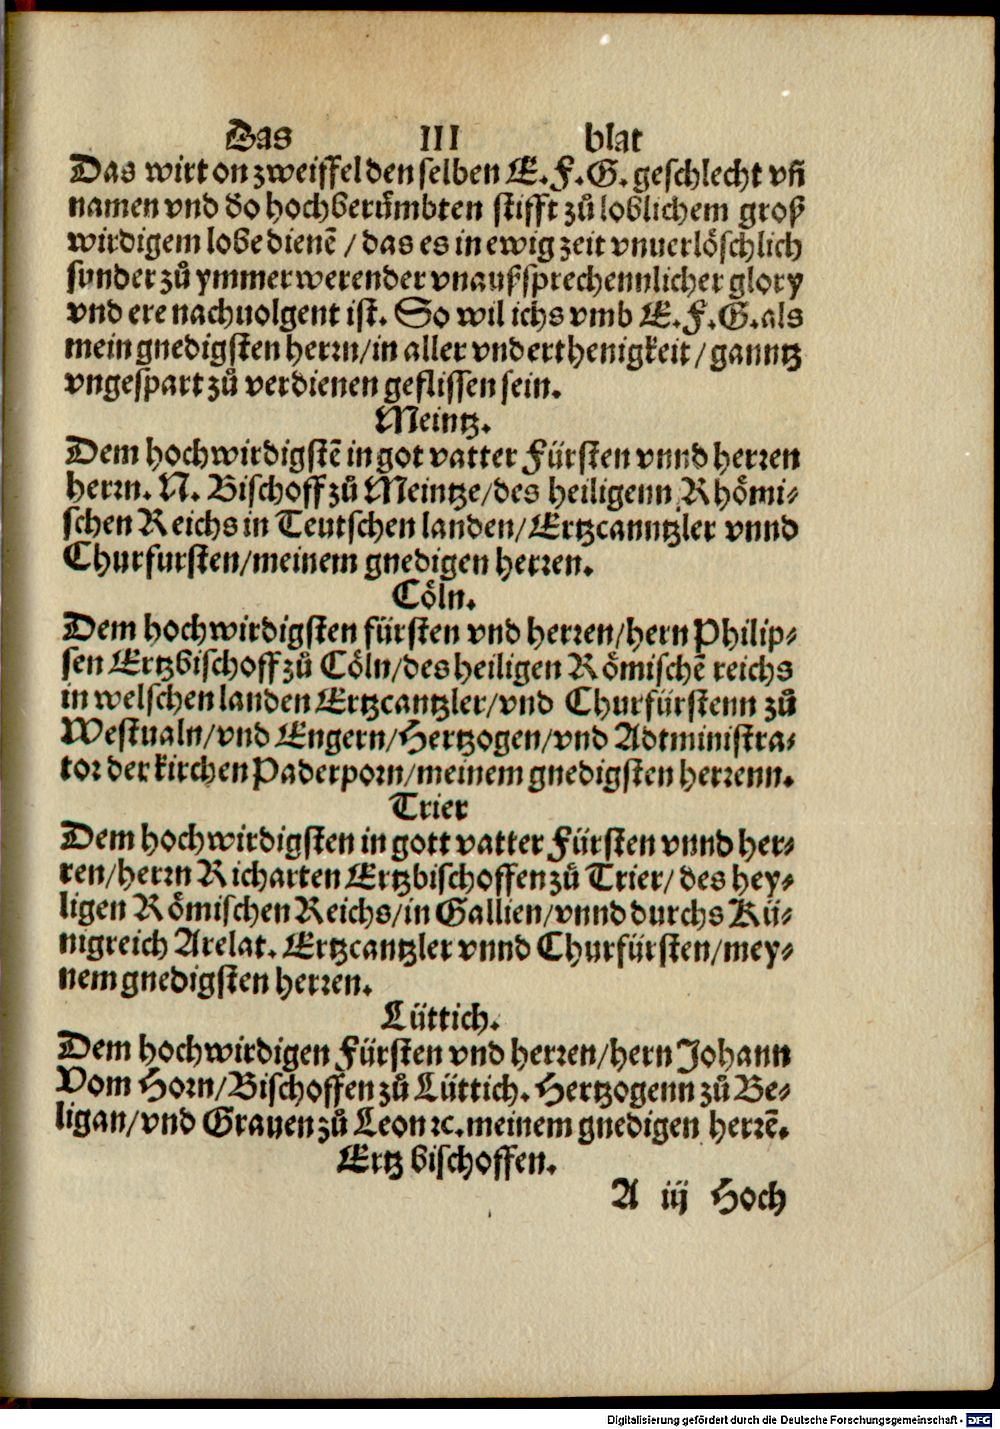 Das III blat
Das wirt on zweiffel den selben E. F. G. geschlecht vñ
namen vnd do hochberůmbten stifft zů loblichem groß
wirdigem lobe dienē / das es in ewig zeit vnuerlöschlich
sunder zů ymmer werender vnaußsprechennlicher glory
vnd ere nachuolgent ist. So wil ichs vmb E. F. G. als
mein gnedigsten herrn/in aller vnderthenigkeit/ganntz
vngespart zů verdienen geflissen sein.
Meintz.
Dem hochwirdigstē in got vatter Fürsten vnnd herren
herrn. N. Bischoff zů Meintze/des heiligenn Rhömi-
schen Reichs in Teutschen landen/Ertzcanntzler vnnd
Churfursten/meinem gnedigen herren.
Cöln.
Dem hochwirdigsten fürsten vnd herren/hern Philip-
sen Ertzbischoff zů Cöln/des heiligen Römischē reichs
in welschen landen Ertzcantzler/vnd Churfürstenn zů
Westualn/vnd Engern/Hertzogen/vnd Adtministra-
tor der kirchen Paderporn/meinem gnedigsten herrenn.
Trier
Dem hochwirdigsten in gott vatter Fürsten vnnd her-
ren/herrn Richarten Ertzbischoffen zů Trier/ des hey-
ligen Römischen Reichs/in Gallien/vnnd durchs Kü-
nigreich Arelat. Ertzcantzler vnnd Churfürsten/mey-
nem gnedigsten herren.
Lüttich.
Dem hochwirdigen Fürsten vnd herren/hern Johann
Vom Horn/Bischoffen zů Lüttich. Hertzogenn zů Be-
ligan/vnd Grauen zů Leon ꝛc. meinem gnedigen herrē.
Ertz bischoffen.
A iij Hoch
Digitalisierung gefördert durch die Deutsche Forschungsgemeinschaft - DFG